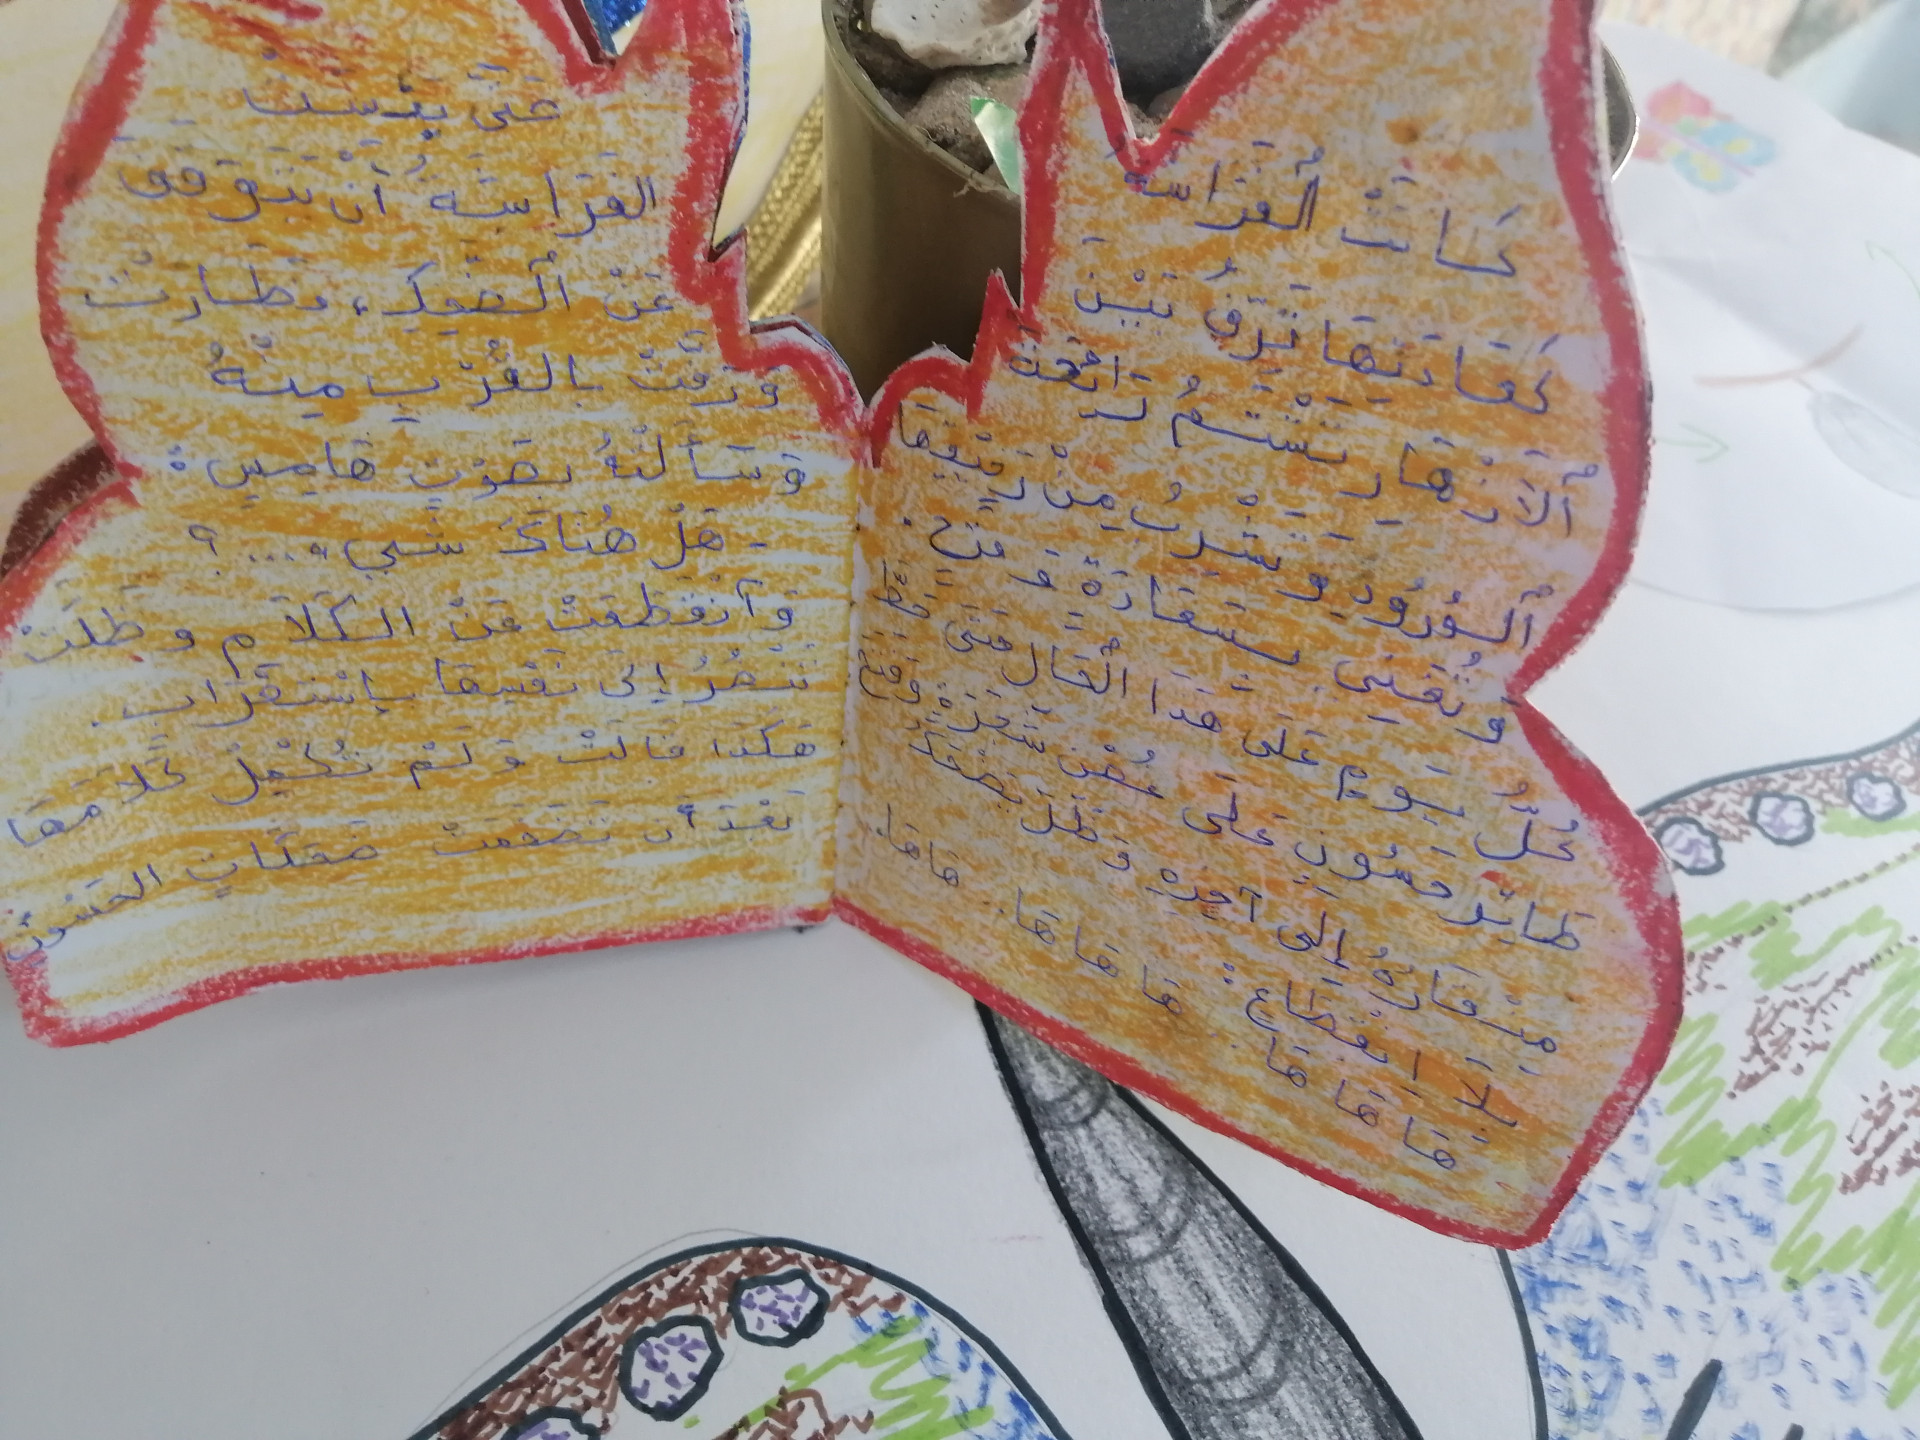 كَانَتْ ٱلْفَرَاشَةُ
كَعَادَتِهَا تَرِفُّ بَيْنَ
ٱلأَزْهَارِ تَشْتَمُّ رَائِحَةَ
ٱلْوُرُودِ وَ تَشْرِبُ مِنْ رَحِيقِهَا
وَتُغَنِّي بِسَعَادَةٍ وَ فَرَحٍ.
كُلُّ يَوْمٍ عَلَى هَذَا الْحَالِ حَتَّى حَطَّ
طَائِرُ حَسُّونٍ عَلَى غُصْنِ شَجَرَةٍ وَفَتَحَ
مِنْقَارَهُ إِلَى آخِرِهِ وَظَلَّ يَضْحَكُ
بِلاَ اِنْقِطَاعٍ:
هَا هَا هَا.. هَا هَا هَا.. هَاهَا.
حَتَّى يَئِسَتْ
الفَرَاشَةُ أَنْ يَتَوَقَّفَ
عَنْ ٱلضَّحِكِ، وَطَارَتْ
وَرَفَّتْ بِالقُرْبِ مِنْهُ
وَسَأَلَتْهُ بِصَوْتٍ هَامِسٍ:
- هَلْ هُنَاكَ شَيء....؟
وَٱنْقَطَعَتْ عَنْ الكَلاَمِ وَ ظَلَّتْ
تَنْظُرُ إِلَى نَفْسِهَا بِاِسْتِغْرَابٍ.
هَكَذَا قَالَتْ وَ لَمْ تُكْمِلْ كَلاَمَهَا
بَعْدَ أَن تَضَخَّمَتْ ضَحَكَاتِ الحَسُّونِ